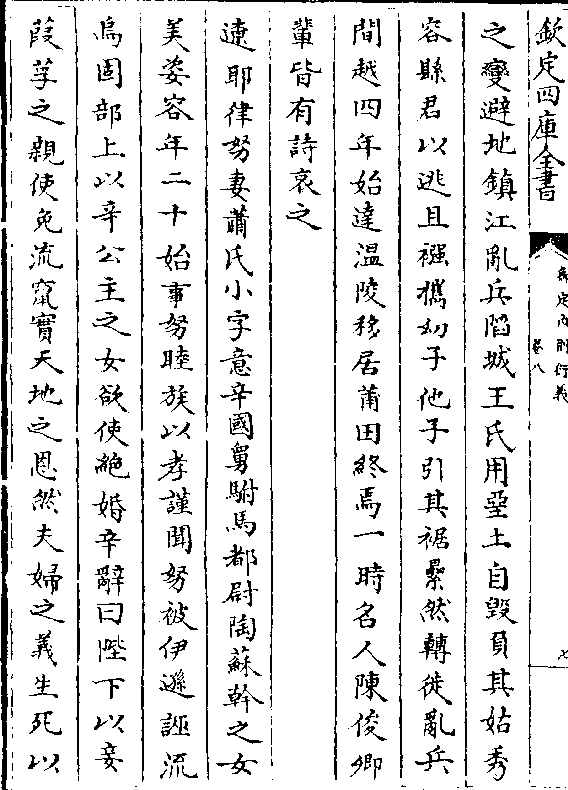 欽定四庫全書
御定內則衍義
卷八
七
之變避地鎮江亂兵陷城王氏用堊土自毀負其姑秀
容縣君以逃且襁擕幼子他子引其裾纍然轉徙亂兵
間越四年始達温陵移居莆田終焉一時名人陳俊卿
輩皆有詩哀之
遼耶律努妻蕭氏小字意辛國舅駙馬都尉陶蘇斡之女
美姿容年二十始事努睦族以孝謹聞努被伊遜誣流
烏固部上以辛公主之女欲使絶婚辛辭曰陛下以妾
葭莩之親使免流竄實天地之恩然夫婦之義生死以